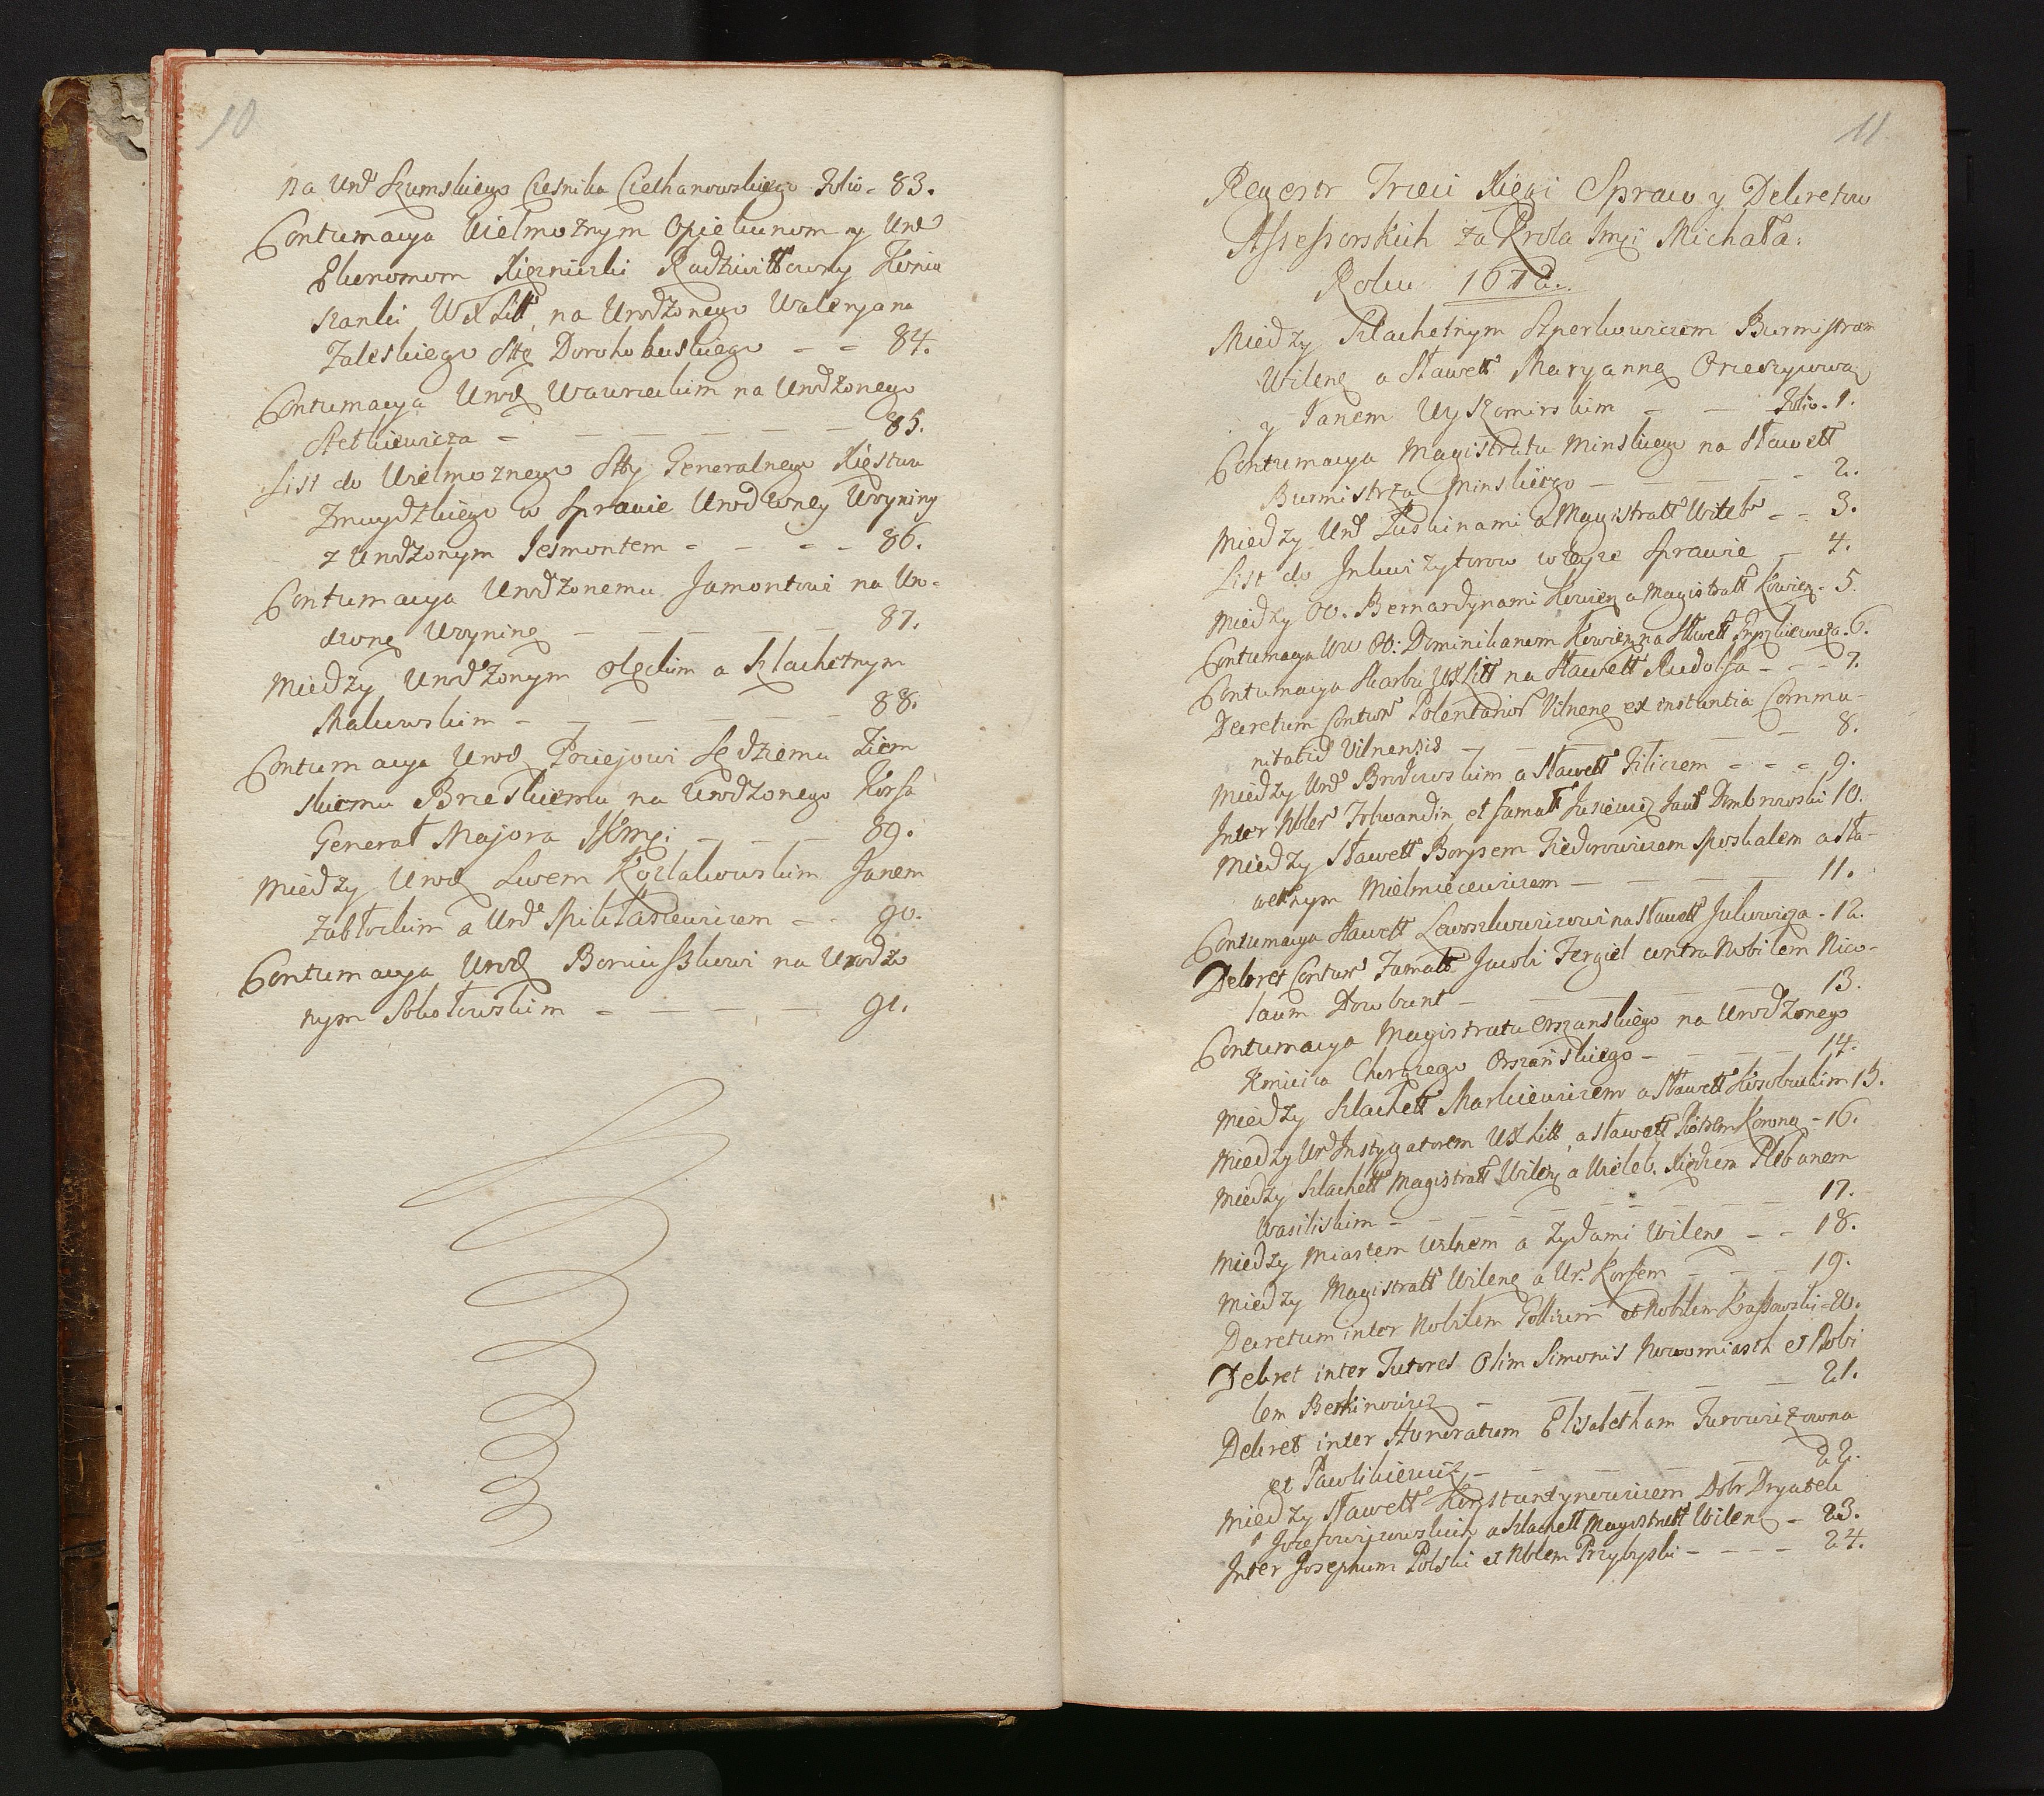 10
na Urd Szumskiego Cześnika Ciechanowskiego Folio - 83.
Contumacya Wielmożnym Opiekunom y Urd
Ekonomom Xięzniczki Radziwiłłowny Koniu
szanki WXLitt, na Urodzonego Waleryana
Zaleskiego Sttę Dorohobuskiego - - 84.
Contumacya Urodz Wawrzeckim na Urodzonego
Stetkiewicza - - - - - - 85.
List do Wielmoznego Stty Generalnego Xięstwa
Zmuydzkiego w Sprawie Urodzoney Woyniny
z Urodzonym Jesmontem - - - - 86.
Contumacya Urodzonemu Jamontowi na Uro-
dzoną Woyninę - - - - - - 87.
Miedzy Urodzonym Olęckim a Szlachetnym
Makowskim - - - - - - 88.
Contumacya Urodz Pociejowi Sędziemu Ziem
skiemu Brzeskiemu na Urodzonego Korfa
Generał Majora JKMci - - - 89.
Miedzy Urodz Lwem Kozlakowskim Janem
Zabłockim a Urd Spilitasiewiczem - - 90.
Contumacya Urodz Boniuszkowi na Urodzo
nym Sokołowskim - - - - - 91.
11
Regestr Trzeci Xięgi Spraw y Dekretow
Assessorskich za Krola Jmci Michała.
Roku 1672.
Miedzy Szlachetnym Szperkowiczem Burmistrzem
Wileng a Sławett Maryanną Orzeszycową
y Janem Wyszomirskim - - Folio. 1.
Contumacya Magistratu Minskiego na Sławett
Burmistrza Minskiego - - - - - 2.
Miedzy Urd Puskinami a Magistratt Witebs - - 3.
List do Inkwizytorow w teyze Sprawie - 4.
Miedzy OO. Bernardynami Kowieng a Magistratt Kowieng. 5.
Contumacya WW OO: Dominikanom Kowieng na Sławett . 6.
Contumacya Skarbu WXLitt na Sławett Rudolfa - - - 7.
Decretum Contum Polentarior Vilneng ex instantia Commu-
nitatis Vilnensis - - - - - 8.
Miedzy Urd Brodowskim a Sławett Filiczem - - - 9.
Inter Nbler Folwandin et famat Dombrowski 10.
Miedzy Sławett Borysem Fiedorowiczem Spostalem a Sła-
wetnym Mielmiecewiczem - - - - 11.
Contumacya Sławett Lewoszkowiczowi na Sławett Julewicza - 12.
Dekret Contum Famatt Jacobi Fergiel contra Nobilem Nico-
laum Dowbunt - - - - - 13.
Contumacya Magistratu Orszanskiego na Urodzonego
Kmicica Chorązego Orszańskiego - - - - 14.
Miedzy Szlachett Markiewiczem a Sławett Kosobuckim 15.
Miedzy Urd Instygatorem WXLitt, a Sławett Piotrem Koroną - 16.
Miedzy Szlachett Magistratt Wileng a Wieleb. Xiędzem Plebanem
Wasiliskim - - - - - - - - - 17.
Miedzy Miastem Wilnem a Zydami Wileng - - 18.
Miedzy Magistratt Wileng a Ur. Korfem - - - 19.
Decretum inter Nobilem Gollium et Noblem Krassowski - 20.
Dekret inter Tutores Olim Simonis Nowomiasth et Nobi
lem Berkinowicz - - - - - 21.
Dekret inter Honoratum Elisabetham Turowiczowna
et Pawlikiewicz - - - - - 22.
Miedzy Sławett Konstantynowiczem Dobr Dryateli
Jozefowiczowskich a Szlachett Magistratt Wileng - 23.
Inter Josephum Polski et Nblem Przybylski - - - - 24.